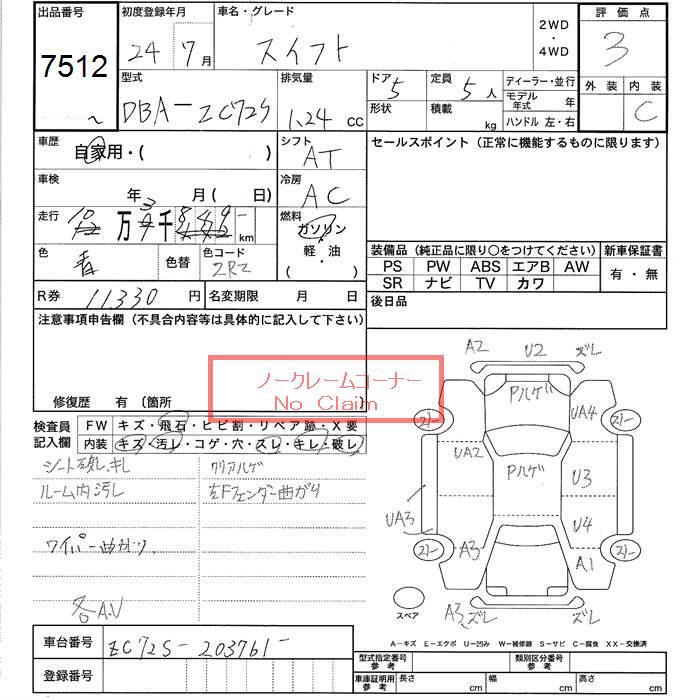 出品番号 初度登録年月 車名・グレード 2WD ・ 4WD 評価点
7512 24 7月 スイフト 3
型式 排気量 ドア 5 定員 5人 ディーラー・並行 外装 内装
DBA-ZC72S 1.24 CC 形状 積載 kg モデル年式 年 C
ハンドル 左・右
車歴 自家用・( ) シフト AT セールスポイント (正常に機能するものに限ります)
車検 年 月( 日) 冷房 AC
走行 万 千 km 燃料 ガソリン 軽・油 ・( )
色 青 色替 色コード 2RZ 装備品 (純正品に限り○をつけてください) 新車保証書
PS PW ABS エアB AW 有・無
SR ナビ TV カワ
R券 11330 円 名変期限 月 日 後日品
注意事項申告欄 (不具合内容等は具体的に記入して下さい)
ノークレームコーナー
No Claim
修復歴 有 (箇所 )
検査員記入欄 FW キズ・飛石・ヒビ割・リペア跡・X要
内装 キズ・汚レ・コゲ・穴・スレ・キレ・破レ
シート破レ.キレ クリアハゲ
ルーム内汚レ 左Fフェンダー曲がり
ワイパー曲がり
各A.U
A2 U2 ズレ
Pハゲ
UA4
UA2
Pハゲ U3
UA3 U4
A3 A1
スペア A3 ズレ ズレ
車台番号 ZC72S-203761-
登録番号
A-キズ E-エクボ U-凹み W-補修跡 S-サビ C-腐食 XX-交換済
型式指定番号 参考 類別区分番号 参考
車庫証明用 参考 長さ cm 幅 cm 高さ cm